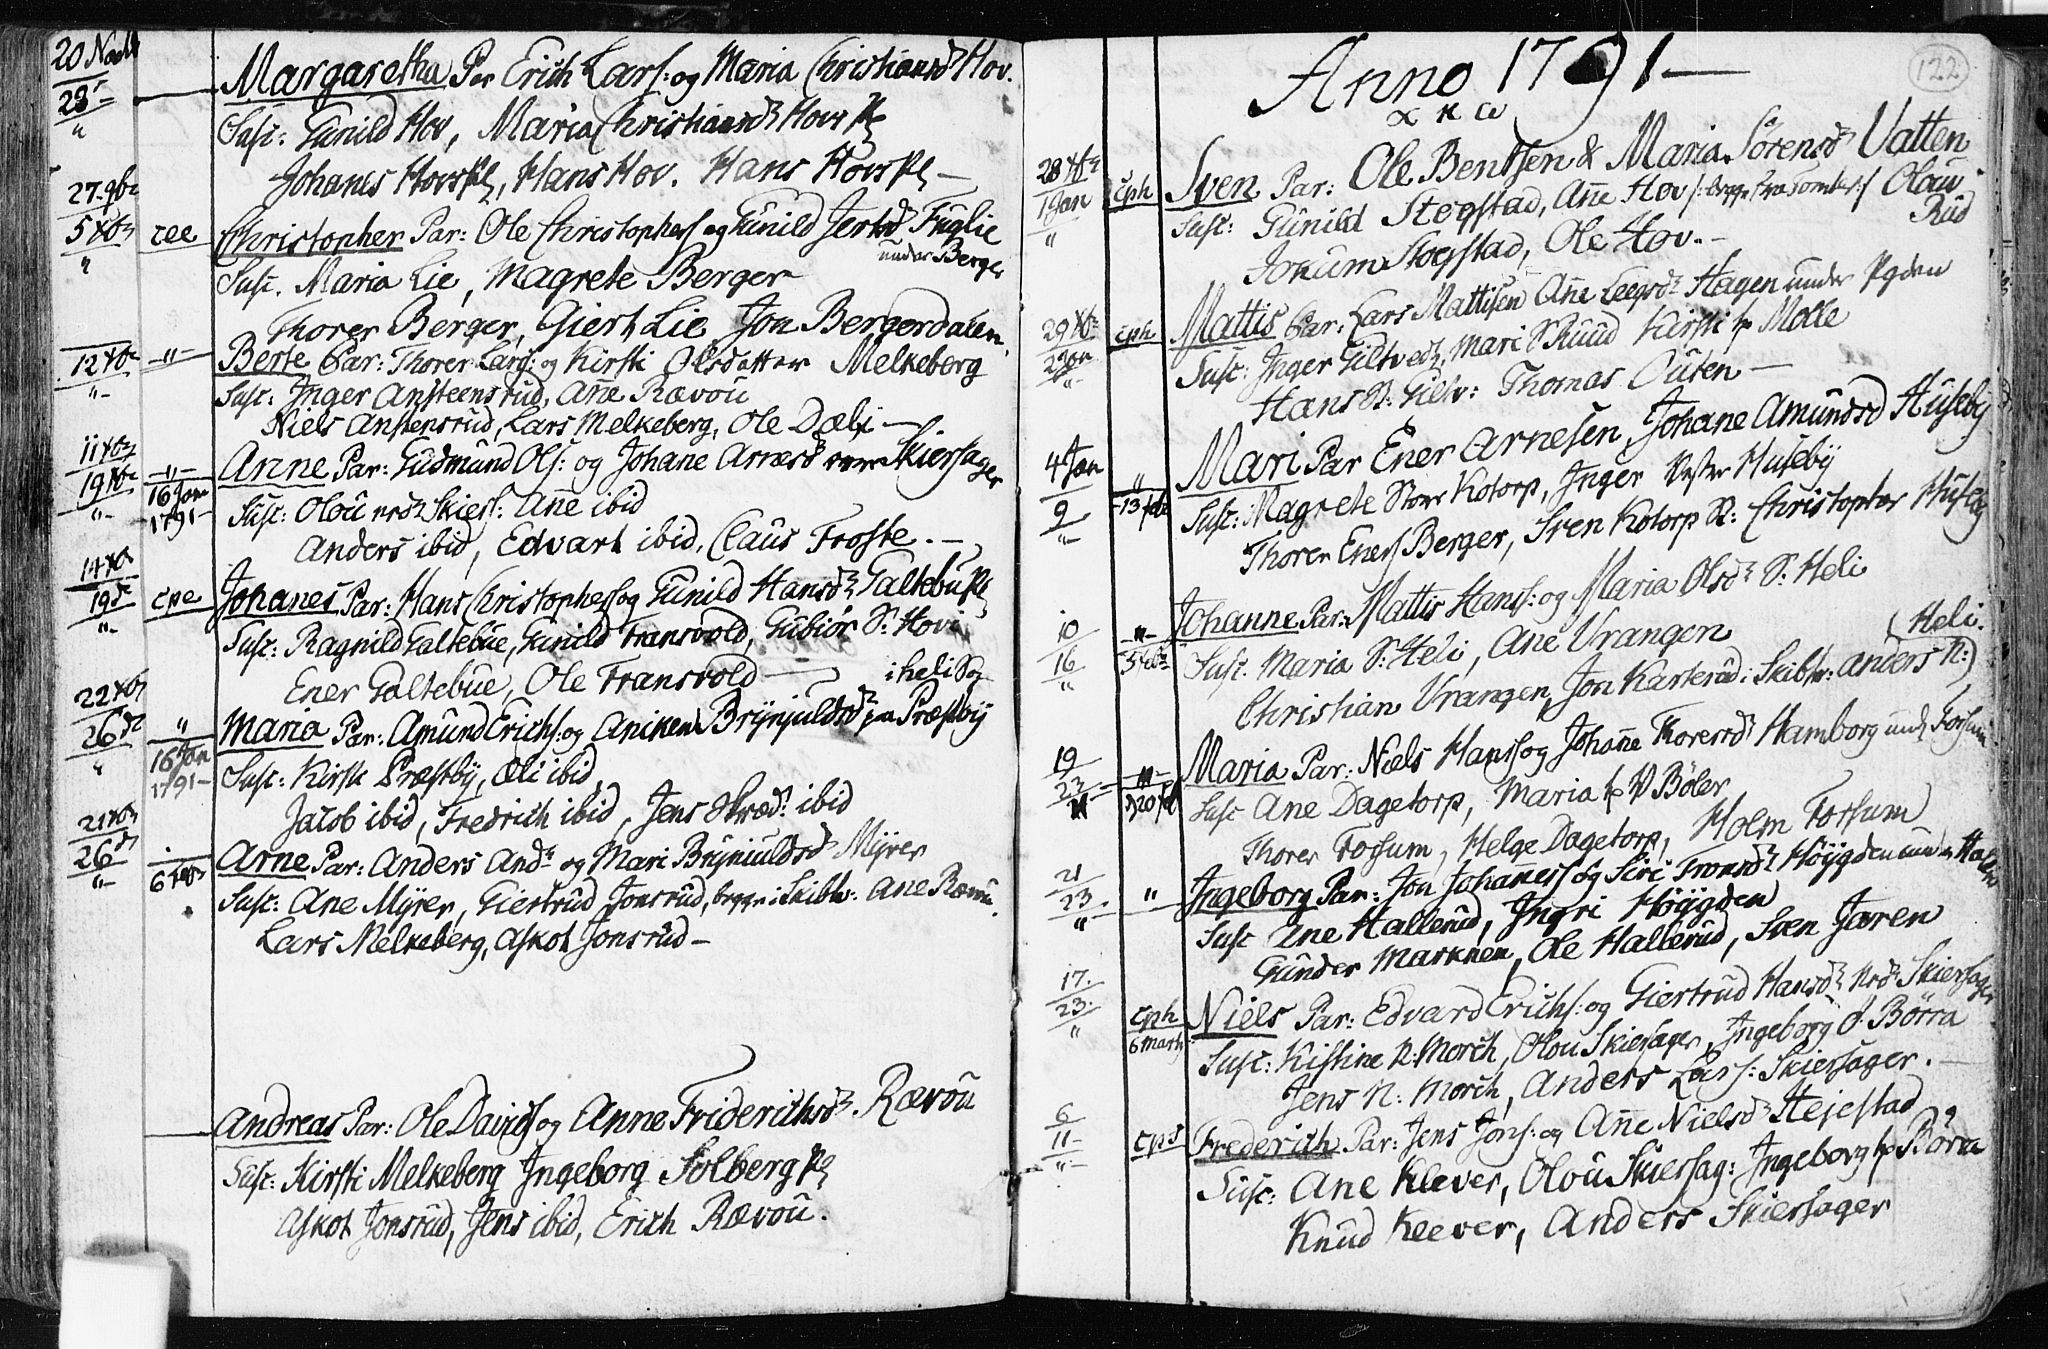 Margaretha Par Erich Lars: og Maria Christiansd Hov.
Susc: Gunild Hov, Maria Christiansd Hovs
Johanes Hovs, Hans Hov. Hans Hovs —
27 9br
5 Xbr cee Christopher Par: Ole Christophers og Gunild Jertsd Fuglie
under Berger
Susc. Maria Lie, Magrete Berger
Thorer Berger, Giert Lie Jon Bergerdalen.
12 Xbr —"— Berte Par: Thorer Lars: og Kirsti Olsdatter Melkeberg
Susc: Inger Ansteensrud, Anne Rævou
Niels Anstensrud, Lars Melkeberg, Ole Dæli —
11 Xbr
19 Xbr —"— Anne Par: Gudmund Ols: og Johane Arnesd Skiersager
16 Jan 1791 — Susc: Olou Skiers: Ane ibid
Anders ibid, Edvart ibid, Claus Froste. —
14 Xbr
19 d cpe Johanes Par: Hans Christophers og Gunild Hansd Galtebu
Susc: Ragnild Galtebue, Gunild Transvold, Gubiør S: Hovi
Ener Galtebue, Ole Transvold — i heli Sog
22 Xbr
26 d " Maria Par: Amund Erichs: og Aniken Brynjuldsd Præstby
16 Jan 1791 — Susc: Kirsti Præstby, Eli ibid
Jacob ibid, Fredrich ibid, Jens Skræd: ibid
21 Xbr
26 d Arne Par: Anders And og Mari Brynjuldsd Myrer
6 Susc: Ane Myrer, Giertrud Jonsrud, begge i Skibtv: Ane Rævou
Lars Melkeberg, Askot Jonsrud —
Andreas Par: Ole Davids og Anne Friderichsd Rævou
Susc: Kirsti Melkeberg Ingeborg Solberg
Askot Jonsrud, Jens ibid, Erich Rævou.
122
Anno 1791 —
28 Xbr
1 Jan cph Sven Par: Ole Bentsen & Maria Sørensd Vatten
Susc: Gunild Stegstad, Ane Hov /: begge fra Tomter :/ Olou Rud
Jokum Stegstad, Ole Hov. —
29 Xbr
2 Jan cph Mattis Par: Lars Mattisen Ane Hagen under
Susc: Inger Giltved, Mari S Ruud Kirsti Molle
Hans S: Giltv: Thomas Outen —
4 Jan " Mari Par Ener Arnesen, Johane Amundsd Huseby
9 13 feb Susc: Magrete Store Kotorp, Inger Vestre Huseby
Thorer Eners Berger, Sven Kotorp S: Christopher Huseby
10 —"— Johanne Par: Mattis Hans: og Maria Olsd S: Heli
16 Susc. Maria S: Heli, Ane Vrangen (Heli.
Christian Vrangen, Jon Karterud i Skibtv: Anders N:)
19 —"— Maria Par: Niels Hans og Johane Thoresd Hamborg und Forsum
23 20 Susc Ane Dagetorp, Maria Böler
Thorer Forsum, Helge Dagetorp, Holm Forsum
21
23 " Ingeborg Par: Jon Johannes og Siri Høygden
Susc Ane Hallerud, Ingri Höygden
Gunder Marknen, Ole Hallerud, Sven Jæren
17.
23. cph Niels Par: Edvard Erichs: og Giertrud Hansd Skiersager
6 Marts Susc: Kistine N: Morch, Olou Skiersager, Ingeborg Börra
Jens N: Morch, Anders Lars: Skiersager.
6
11 — cps Frederich Par: Jens Jons: og Ane Nielsd Hejestad
Susc: Ane Klever, Olou Skiersag: Ingeborg Börra
Knud Kleever, Anders Skiersager